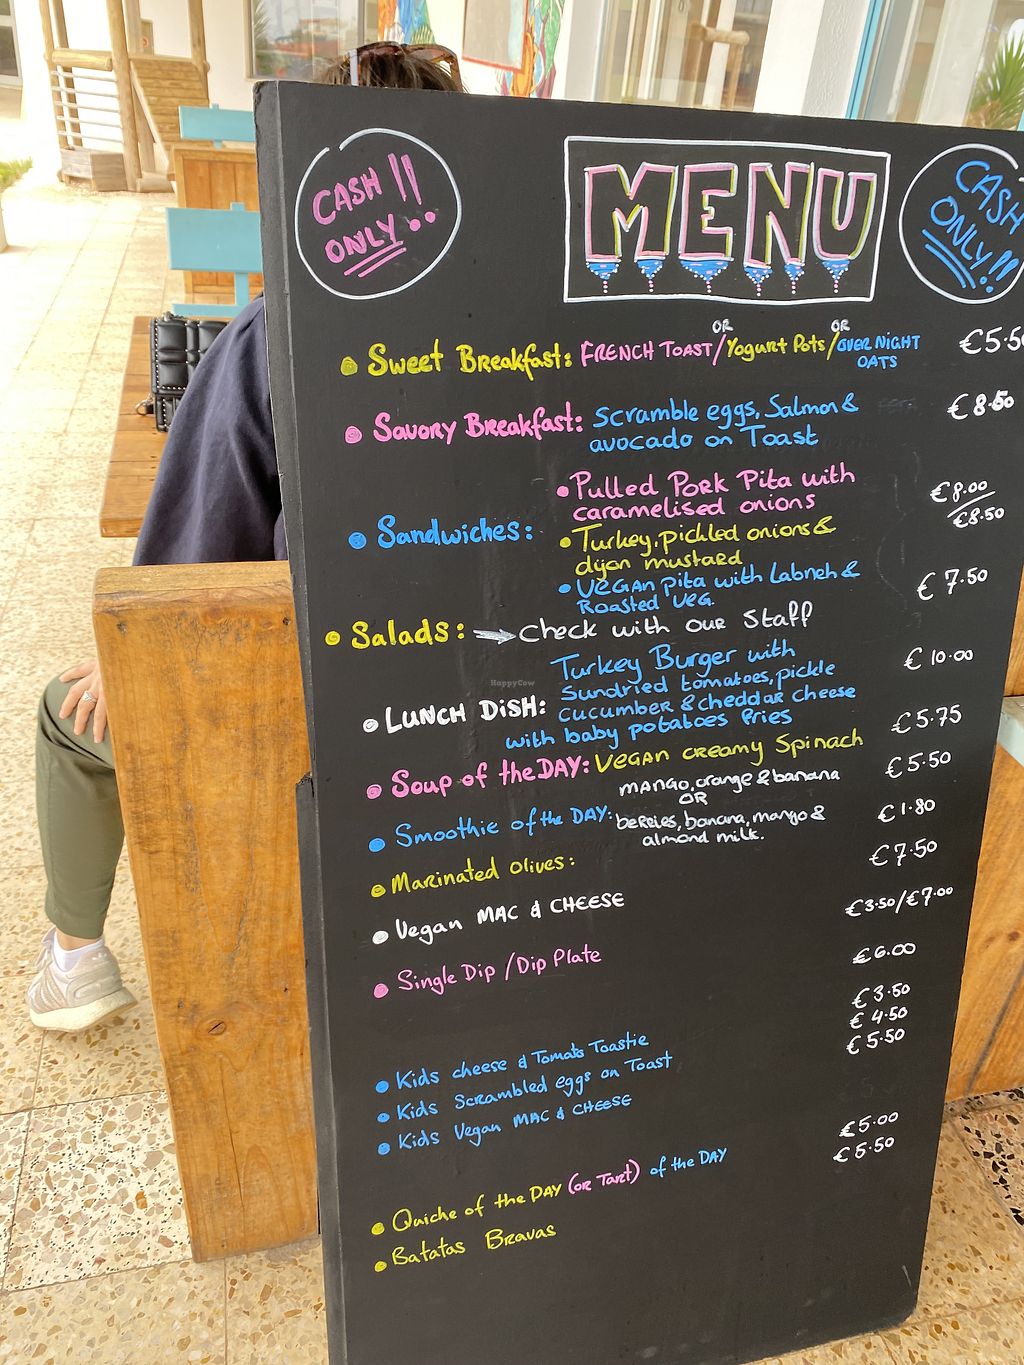 CASH !!
ONLY..
MENU
CASH
ONLY!!
Sweet Breakfast: FRENCH TOAST/OR Yogurt Pots/OR OVER NIGHT OATS €5.50
Savory Breakfast: Scramble eggs, Salmon &
avocado on Toast €8.50
Sandwiches:
Pulled Pork Pita with
caramelised onions €8.00
Turkey, pickled onions &
dijon mustard €8.50
VEGAN pita with Labneh &
Roasted VEG. €7.50
Salads: → Check with our Staff
LUNCH DISH: Turkey Burger with €10.00
Sundried tomatoes, pickle
cucumber & cheddar cheese
with baby potatoes fries
Soup of the DAY: VEGAN creamy Spinach €5.75
Smoothie of the DAY: mango, orange & banana €5.50
OR
berries, banana, mango &
almond milk.
Marinated olives: €1.80
Vegan MAC & CHEESE €7.50
Single Dip / Dip Plate €3.50/€7.00
€6.00
Kids cheese & Tomato Toastie €3.50
Kids Scrambled eggs on Toast €4.50
Kids Vegan MAC & CHEESE €5.50
Quiche of the DAY (or Tart) of the DAY €5.00
Batatas Bravas €5.50
HappyCow